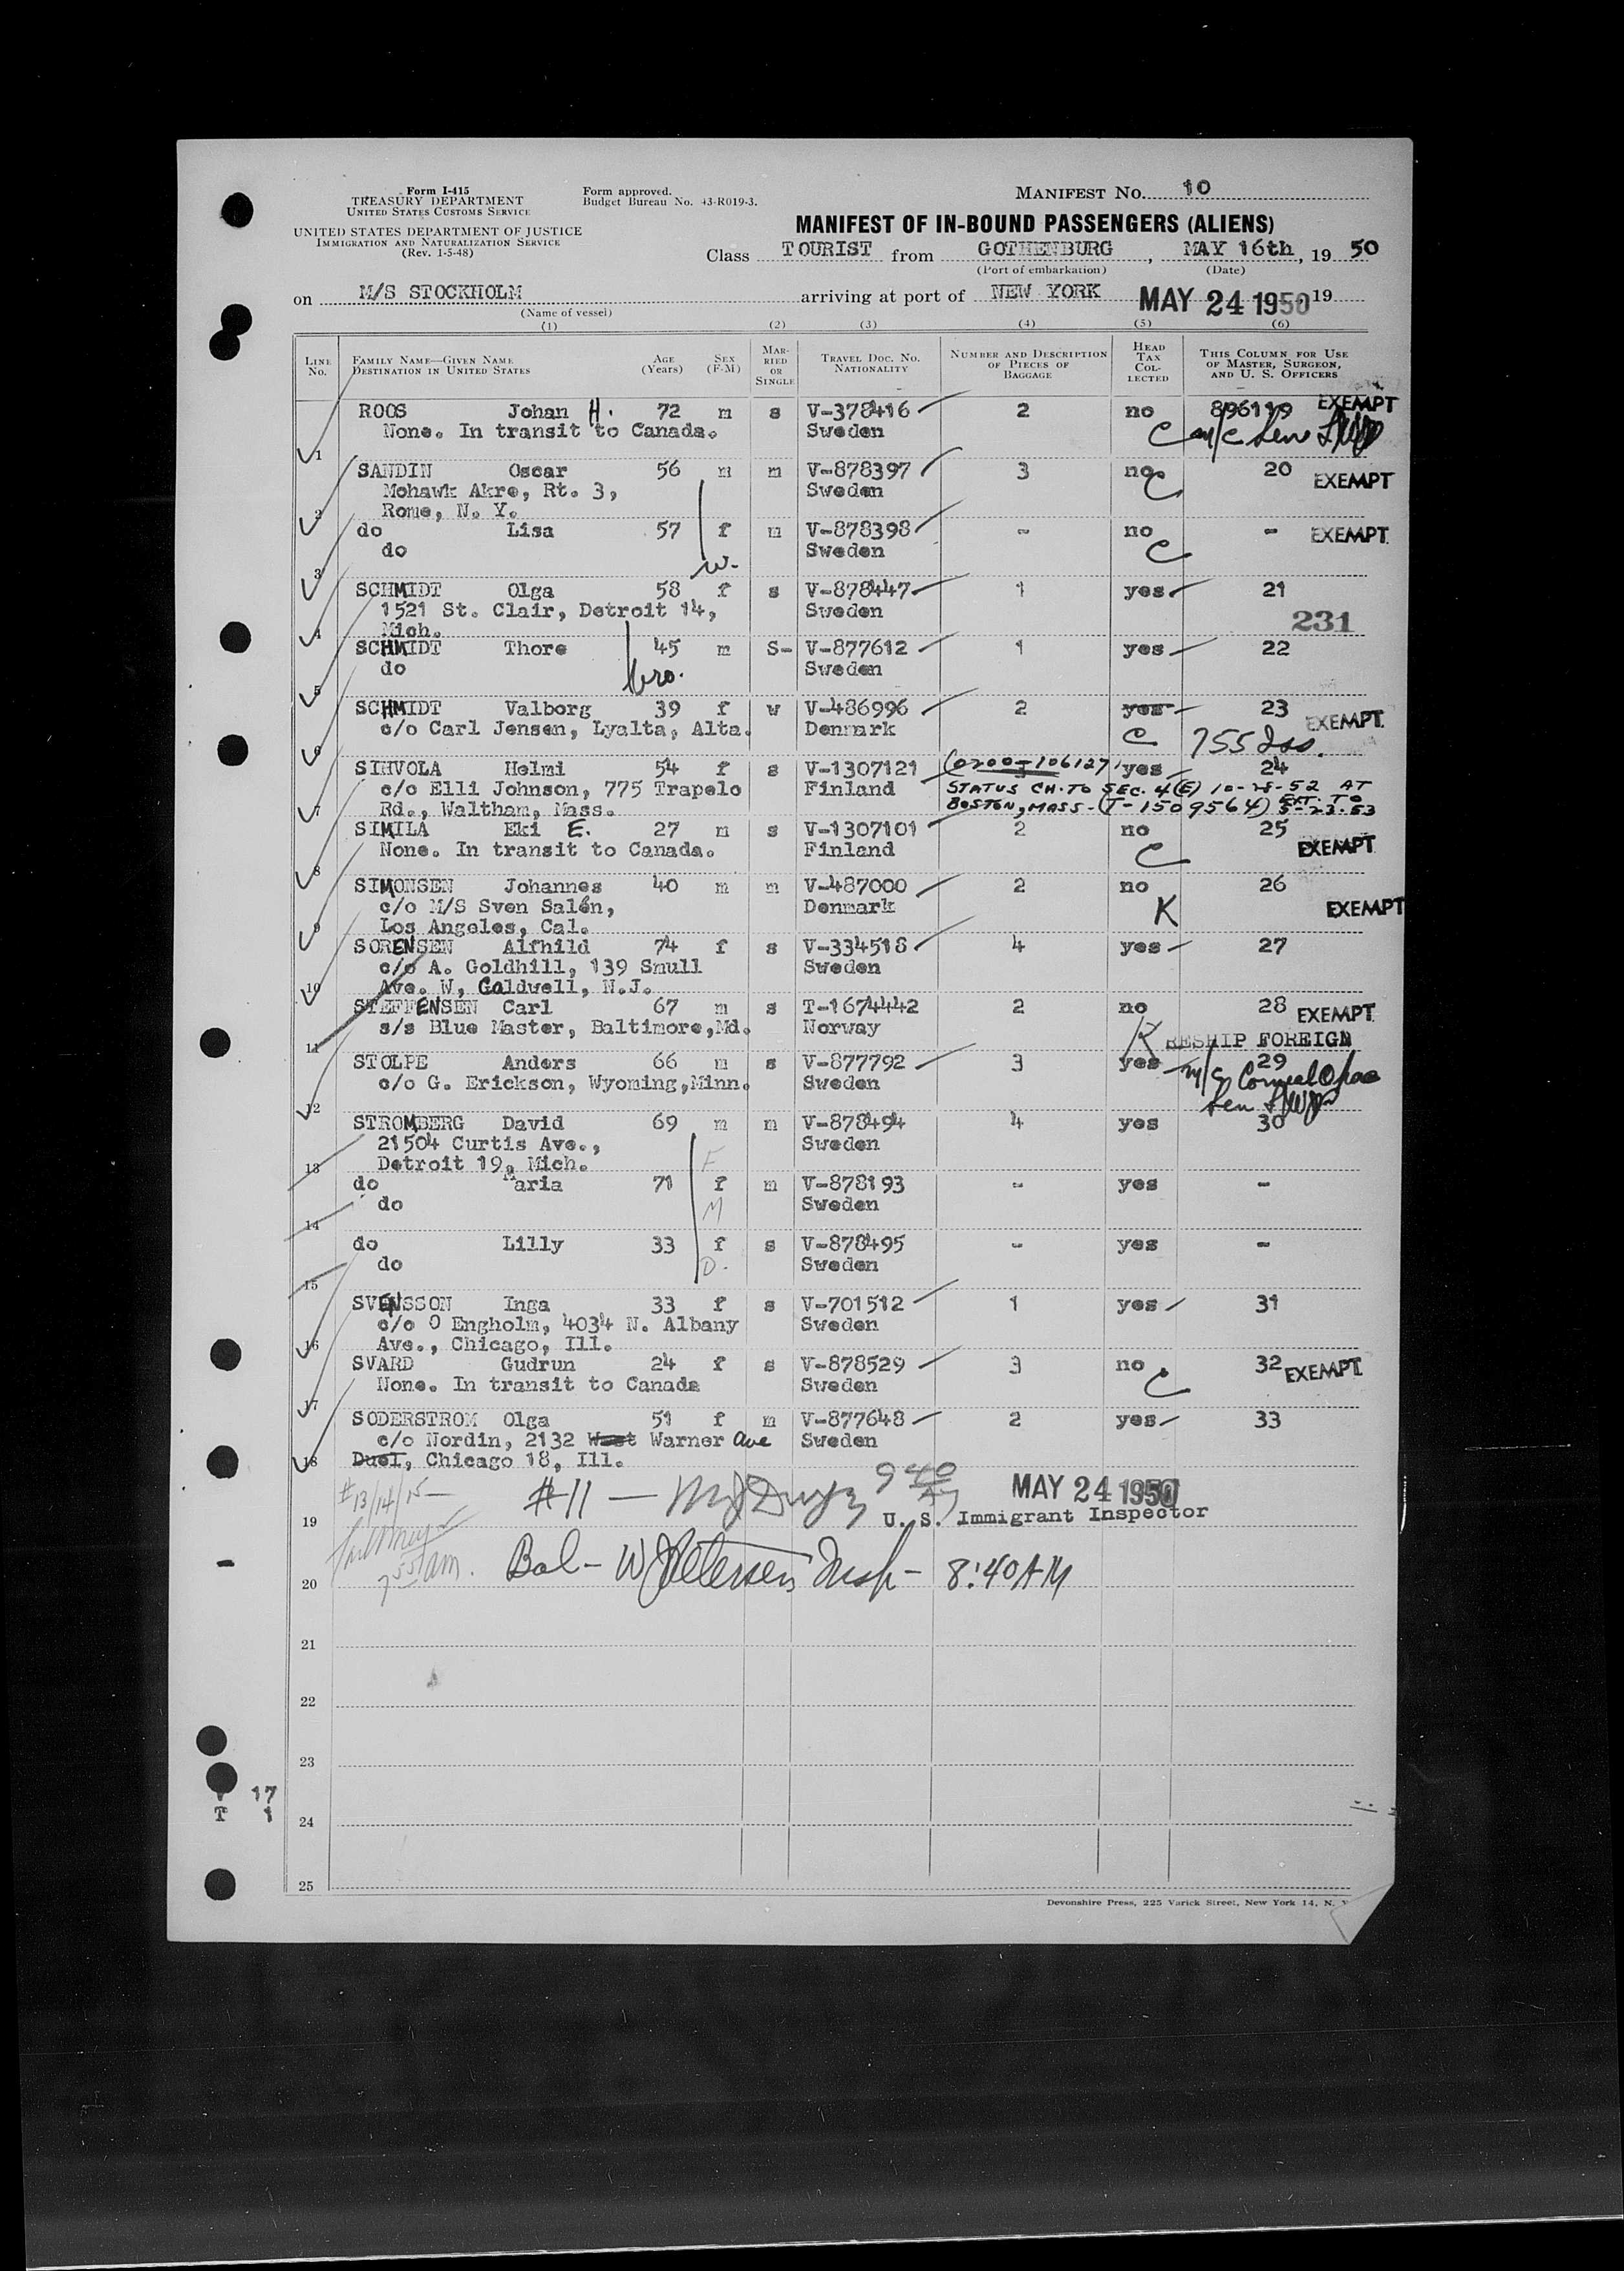 Form I-415
TREASURY DEPARTMENT
UNITED STATES CUSTOMS SERVICE
UNITED STATES DEPARTMENT OF JUSTICE
IMMIGRATION AND NATURALIZATION SERVICE
(Rev. 1-5-48)
Form approved.
Budget Bureau No. 43-R019-3.
MANIFEST NO. 10
MANIFEST OF IN-BOUND PASSENGERS (ALIENS)
Class TOURIST from GOTHENBURG, MAY 16th, 19 50
(Port of embarkation) (Date)
on M/S STOCKHOLM arriving at port of NEW YORK MAY 24 1950 19
(Name of vessel)
(1) (2) (3) (4) (5) (6)
LINE NO. FAMILY NAME—GIVEN NAME DESTINATION IN UNITED STATES AGE (Years) SEX (F-M) MARRIED OR SINGLE TRAVEL DOC. NO. NATIONALITY NUMBER AND DESCRIPTION OF PIECES OF BAGGAGE HEAD TAX COLLECTED THIS COLUMN FOR USE OF MASTER, SURGEON, AND U. S. OFFICERS
ROOS Johan H. 72 m s V-378416 2 no 896119 EXEMPT
None. In transit to Canada. Sweden C
1
SANDIN Oscar 56 m m V-878397 3 no 20 EXEMPT
Mohawk Akre, Rt. 3, Sweden C
2 Rome, N. Y.
do Lisa 57 f m V-878398 - no - EXEMPT
do Sweden C
3 w.
SCHMIDT Olga 58 f s V-878447 1 yes 21
1521 St. Clair, Detroit 14, Sweden 231
4 Mich.
SCHMIDT Thore 45 m S- V-877612 1 yes 22
do Sweden
5 bro.
SCHMIDT Valborg 39 f w V-486996 2 yes 23 EXEMPT
c/o Carl Jensen, Lyalta, Alta. Denmark C
6
SIHVOLA Helmi 54 f s V-1307121 (0200-I-106127) yes 24
c/o Elli Johnson, 775 Trapelo Finland STATUS CH. TO SEC. 4(E) 10-28-52 AT
7 Rd., Waltham, Mass. BOSTON, MASS. (T-1509564) EXT. TO 5-23-53
SIMILA Eki E. 27 m s V-1307101 2 no 25 EXEMPT
None. In transit to Canada. Finland C
8
SIMONSEN Johannes 40 m m V-487000 2 no 26 EXEMPT
c/o M/S Sven Salén, Denmark K
9 Los Angeles, Cal.
SORENSEN Alfhild 74 f s V-334518 4 yes 27
c/o A. Goldhill, 139 Smull Sweden
10 Ave. W, Caldwell, N.J.
STEFFENSEN Carl 67 m s T-1674442 2 no 28 EXEMPT
s/s Blue Master, Baltimore, Md. Norway K RESHIP FOREIGN
11
STOLPE Anders 66 m s V-877792 3 yes 29
c/o G. Erickson, Wyoming, Minn. Sweden
12
STROMBERG David 69 m m V-878494 4 yes 30
21504 Curtis Ave., Sweden F
13 Detroit 19, Mich.
do Maria 71 f m V-878193 - yes -
do Sweden M
14
do Lilly 33 f s V-878495 - yes -
do Sweden D.
15
SVENSSON Inga 33 f s V-701512 1 yes 31
c/o O Engholm, 4034 N. Albany Sweden
16 Ave., Chicago, Ill.
SVARD Gudrun 24 f s V-878529 3 no 32 EXEMPT
None. In transit to Canada Sweden C
17
SODERSTROM Olga 51 f m V-877648 2 yes 33
c/o Nordin, 2132 West Warner Ave Sweden
18 Duel, Chicago 18, Ill.
#13/14/15 #11 — 940 MAY 24 1950
19 U. S. Immigrant Inspector
7 55 am. Bal - W J Petersen Insp - 8:40 AM
20
21
22
23
17
T 1
24
25
Devonshire Press, 225 Varick Street, New York 14, N. Y.